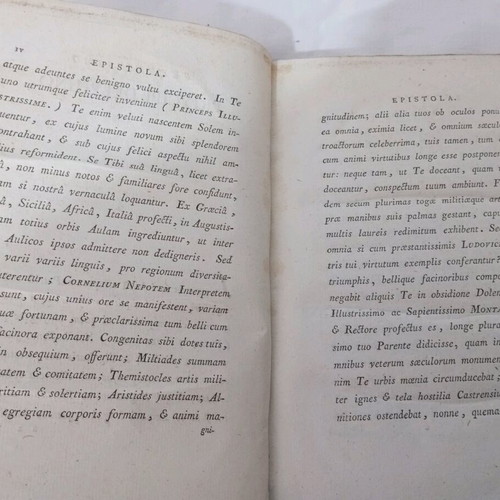 IV
EPISTOLA.
atque adeuntes se benigno vultu exciperet. In Te
uno utrumque feliciter inveniunt (PRINCEPS ILLU-
STRISSIME.) Te enim veluti nascentem Solem in-
uentur, ex cujus lumine novum sibi splendorem
contrahant, & sub cujus felici aspectu nihil am-
ius reformident. Se Tibi suâ linguâ, licet extra-
â, non minus notos & familiares fore confidunt,
m si nostra vernaculâ loquantur. Ex Græciâ,
â, Siciliâ, Africâ, Italiâ profecti, in Augustis-
am totius orbis Aulam ingrediuntur, ut inter
Aulicos ipsos admittere non dedigneris. Sed
varii variis linguis, pro regionum diversita-
uterentur; CORNELIUM NEPOTEM Interpretem
sunt, cujus unius ore se manifestent, variam
uæ fortunam, & præclarissima tum belli cum
facinora exponant. Congenitas sibi dotes tuis,
in obsequium, offerunt; Miltiades summam
tatem & comitatem; Themistocles artis mili-
ritiam & solertiam; Aristides justitiam; Al-
egregiam corporis formam, & animi ma-
gni-
EPISTOLA.
gnitudinem; alii alia tuos ob oculos ponun
ea omnia, eximia licet, & omnium sæcul
troactorum celeberrima, tuis tamen, tum c
cum animi virtutibus longe esse postponer
tur: neque tam, ut Te doceant, quam v
doceantur, conspectum tuum ambiunt.
dem secum plurimas togæ militiæque art
præ manibus suis palmas gestant, cap
multis laureis redimitum exhibent. Se
omnia si cum præstantissimis LUDOVIC
tris tui virtutum exemplis conferantur
triumphis, bellique facinoribus compo
negabit aliquis Te in obsidione Dolen
Illustrissimo ac Sapientissimo MONTA
& Rectore profectus es, longe plura
simo tuo Parente didicisse, quam in
mnibus veterum sæculorum monumen
nim Te urbis mœnia circumducebat;
ter ignes & tela hostilia Castrensiu
nitiones ostendebat, nonne, quema